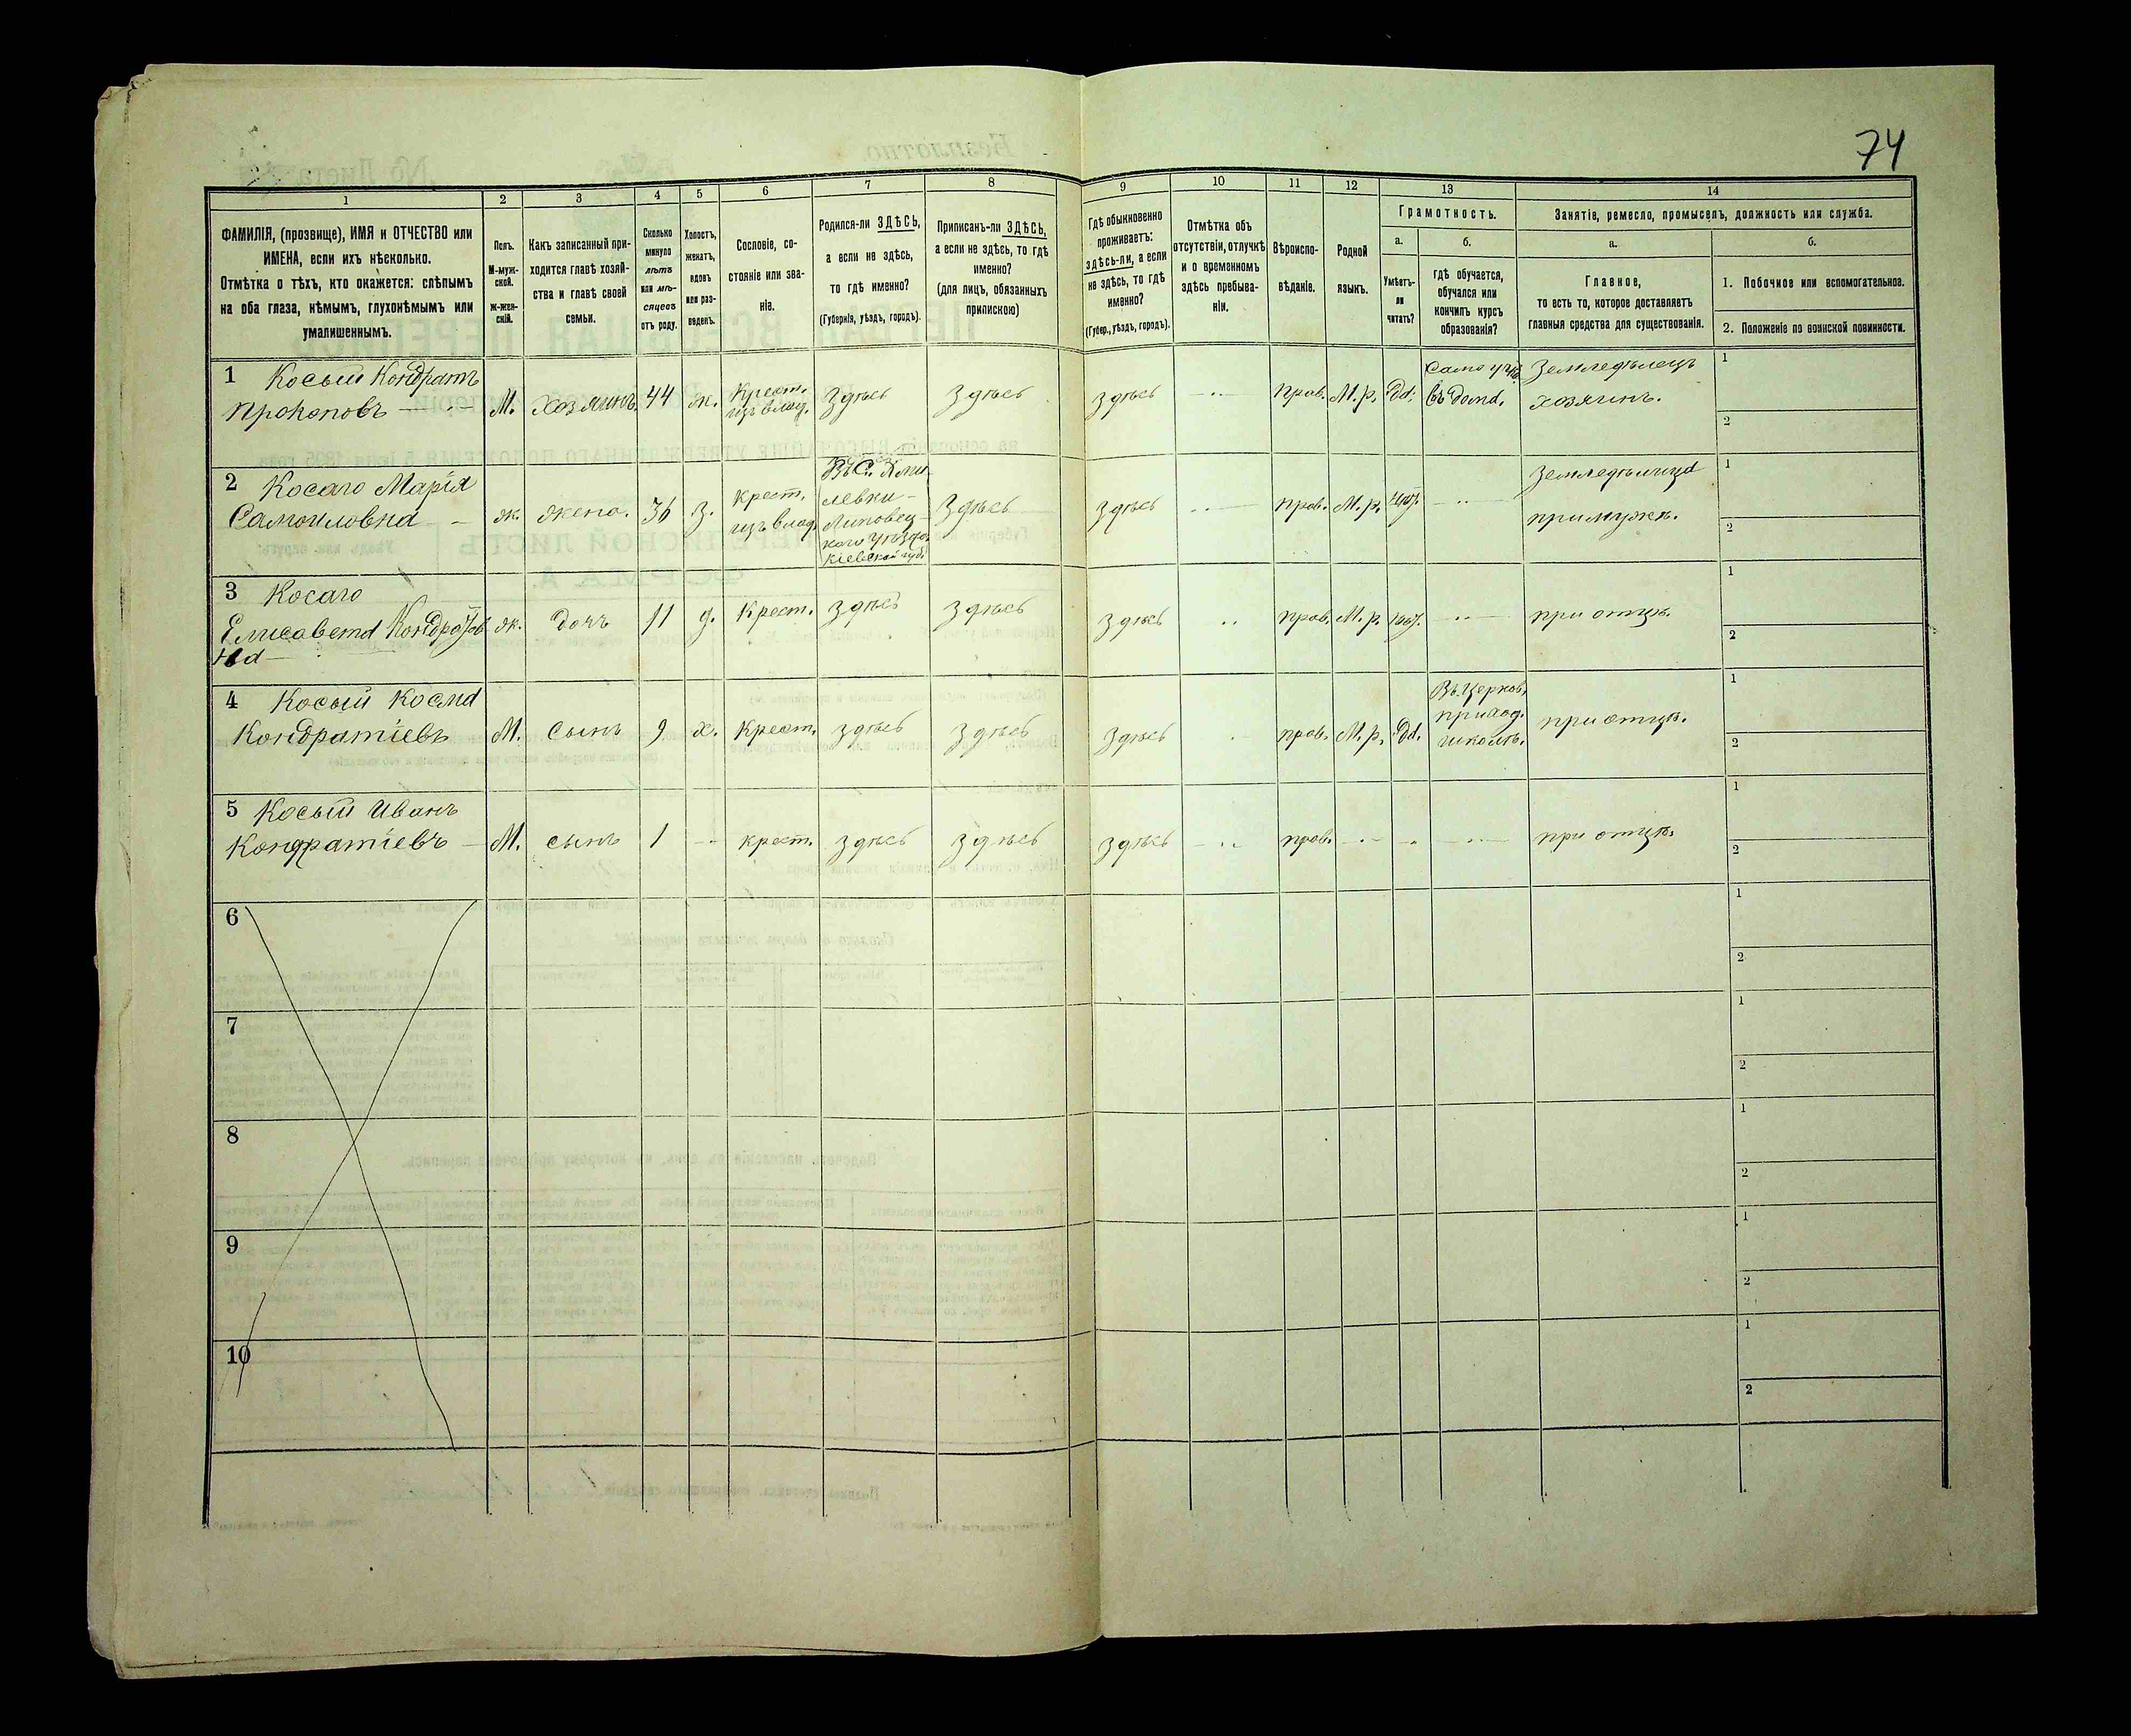 74
1
2
3
4
5
6
7
8
9
10
11
12
13
14
ФАМИЛІЯ, (прозвище), ИМЯ и ОТЧЕСТВО или
ИМЕНА, если ихъ нѣсколько.
Отмѣтка о тѣхъ, кто окажется: слѣпымъ
на оба глаза, нѣмымъ, глухонѣмымъ или
умалишеннымъ.
Полъ.
М-муж-
ской.
Ж-жен-
скій.
Какъ записанный при-
ходится главѣ хозяй-
ства и главѣ своей
семьи.
Сколько
минуло
лѣтъ
или мѣ-
сяцевъ
отъ роду.
Холостъ,
женатъ,
вдовъ
или раз-
веденъ.
Сословіе, со-
стояніе или зва-
ніе.
Родился-ли ЗДѢСЬ,
а если не здѣсь,
то гдѣ именно?
(Губернія, уѣздъ, городъ).
Приписанъ-ли ЗДѢСЬ,
а если не здѣсь, то гдѣ
именно?
(для лицъ, обязанныхъ
припискою)
Гдѣ обыкновенно
проживаетъ:
здѣсь-ли, а если
не здѣсь, то гдѣ
именно?
(Губер., уѣздъ, городъ).
Отмѣтка объ
отсутствіи, отлучкѣ
и о временномъ
здѣсь пребыва-
ніи.
Вѣроиспо-
вѣданіе.
Родной
языкъ.
Грамотность.
а.
Умѣетъ-
ли
читать?
б.
гдѣ обучается,
обучался или
кончилъ курсъ
образованія?
Занятіе, ремесло, промыселъ, должность или служба.
а.
Главное,
то есть то, которое доставляетъ
главныя средства для существованія.
б.
1. Побочное или вспомогательное.
2. Положеніе по воинской повинности.
1 Косый Кондратъ
Прокоповъ
М.
хозяинъ
44
ж.
Крест.
изъ влад.
Здѣсь
Здѣсь
здѣсь
Прав.
М.р.
Да.
въ дома.
Земледѣлецъ
хозяинъ.
1
2
2 Косаго Марія
Самоиловна
ж.
жена.
36
з.
крест.
изъ влад.
Въ С.
левки
Липовец
каго уѣзда
Кіевской губ.
Здѣсь
здѣсь
прав.
М.р.
нѣт.
Земледѣлица
при мужѣ.
1
2
3 Косаго
Елисавета Кондратов
на
ж.
дочь
11
д.
Крест.
здѣсь
здѣсь
здѣсь
прав.
М.р.
нѣт.
при отцѣ.
1
2
4 Косый Косма
Кондратіевъ
М.
сынъ
9
х.
Крест.
здѣсь
здѣсь
здѣсь
прав.
М.р.
Да.
Въ церков.
приход.
школѣ.
при отцѣ.
1
2
5 Косый Иванъ
Кондратіевъ
М.
сынъ
1
крест.
здѣсь
здѣсь
здѣсь
прав.
при отцѣ.
1
2
6
1
2
7
1
2
8
1
2
9
1
2
10
1
2